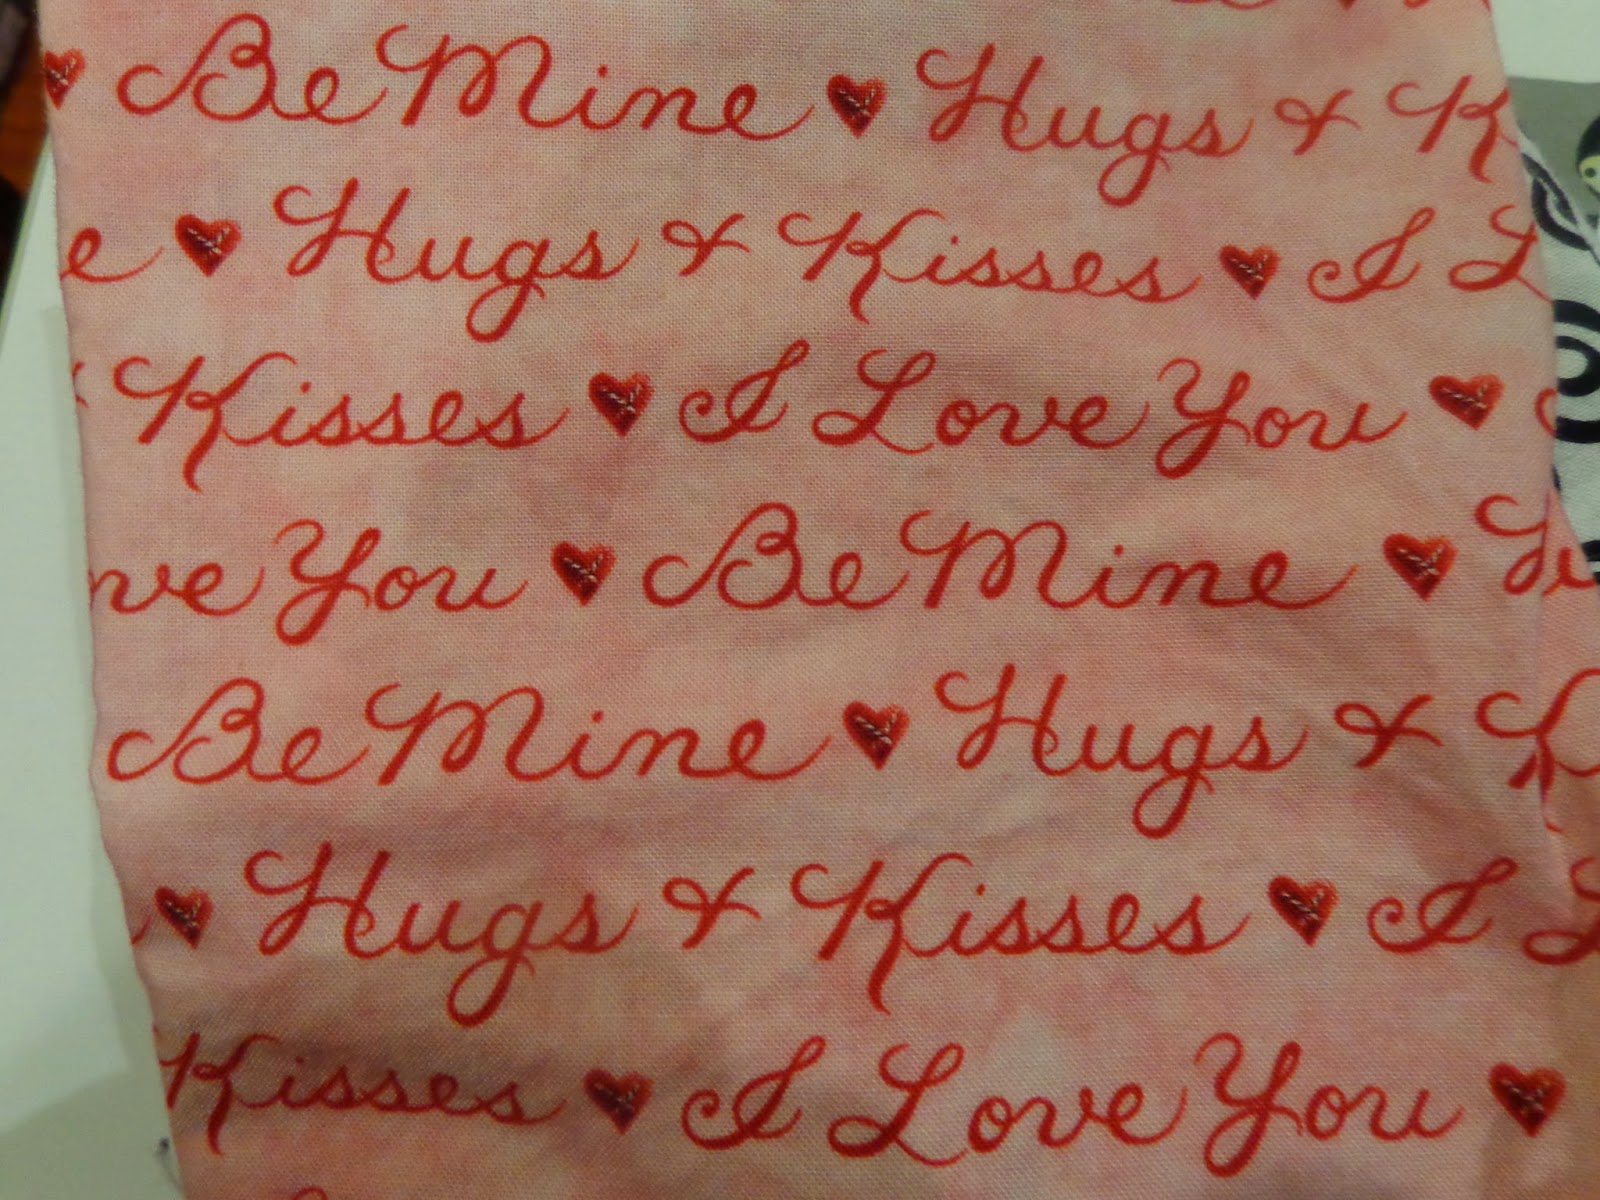 Be Mine ♥ Hugs & K
e ♥ Hugs & Kisses ♥ I L
Kisses ♥ I Love You ♥
ve You ♥ Be Mine ♥
Be Mine ♥ Hugs &
♥ Hugs & Kisses ♥ I L
Kisses ♥ I Love You ♥